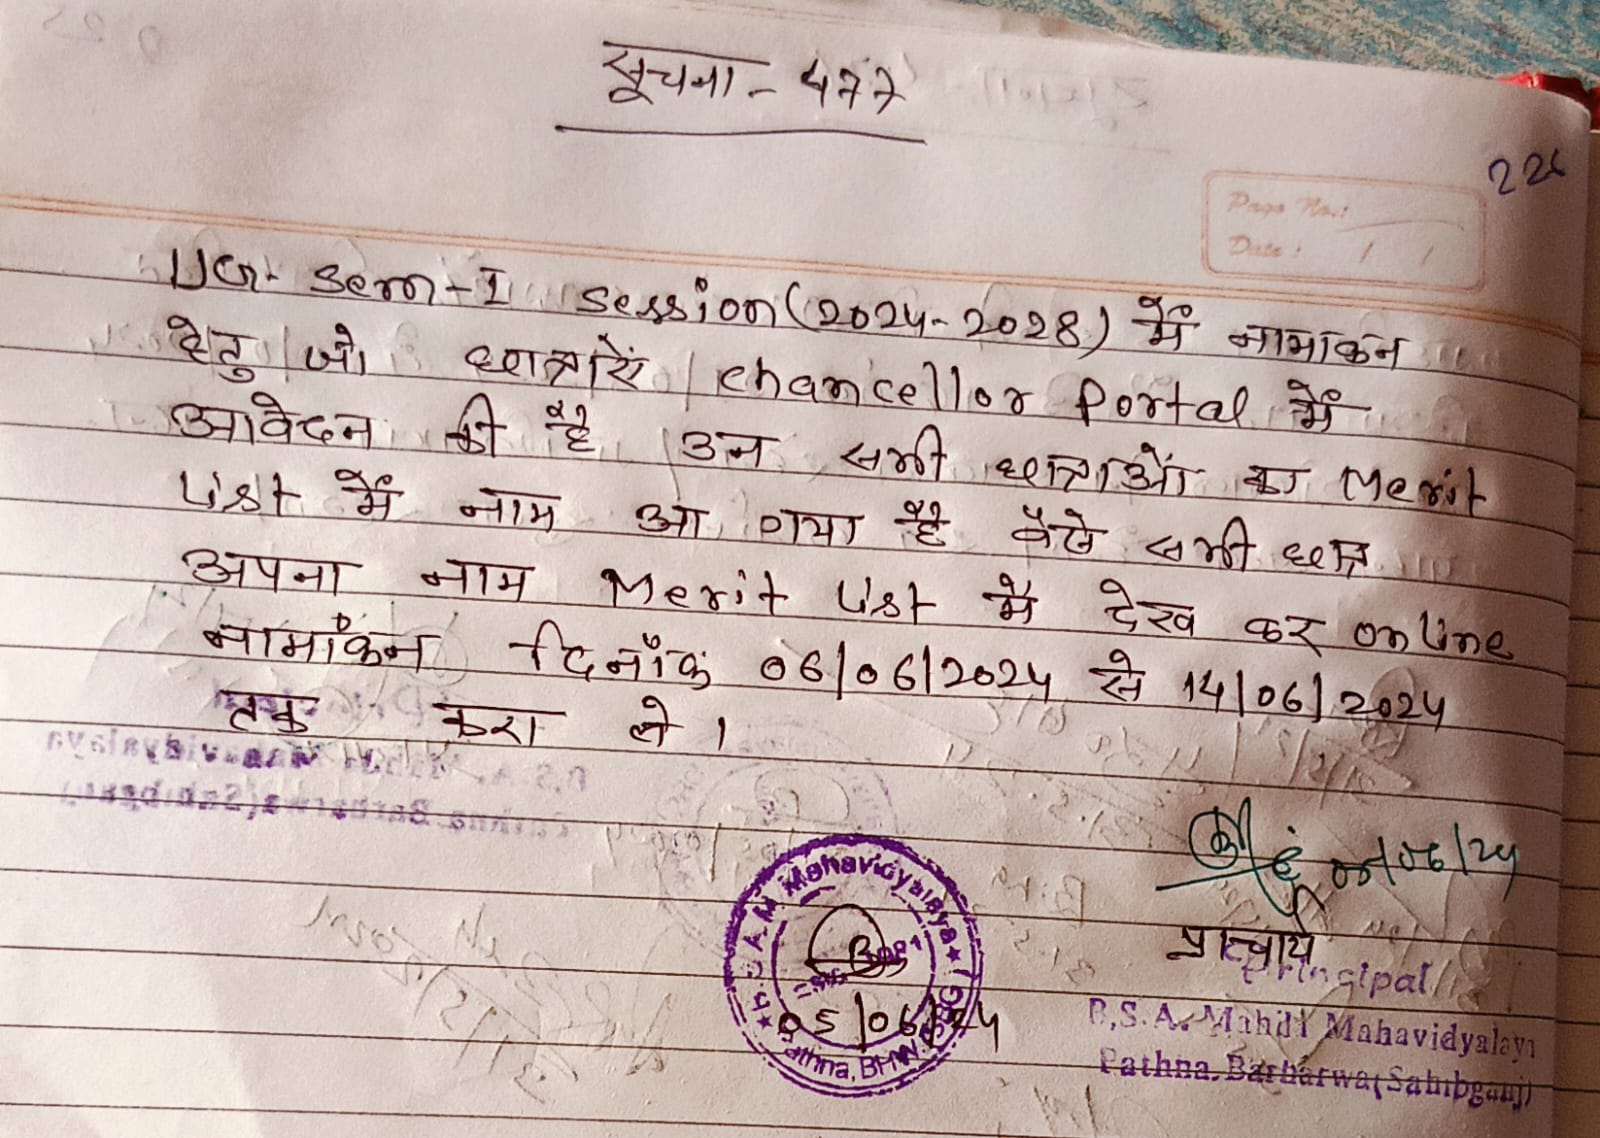 सूचना - 477
226
Page No.:
Date : / /
UG. Sem-I Session (2024-2028) में नामांकन
हेतु जो छात्राएं chancellor Portal में
आवेदन की है उन सभी छात्राओं का Merit
List में नाम आ गया है वैसे सभी छात्र
अपना नाम Merit List में देख कर online
नामांकन दिनाँक 06/06/2024 से 14/06/2024
तक करा ले ।
06/24
प्राचार्य
Principal
B.S.A. Mahila Mahavidyalaya
Pathna, Barharwa (Sahibganj)
Mahavidyalaya
05/06/24
Pathna,